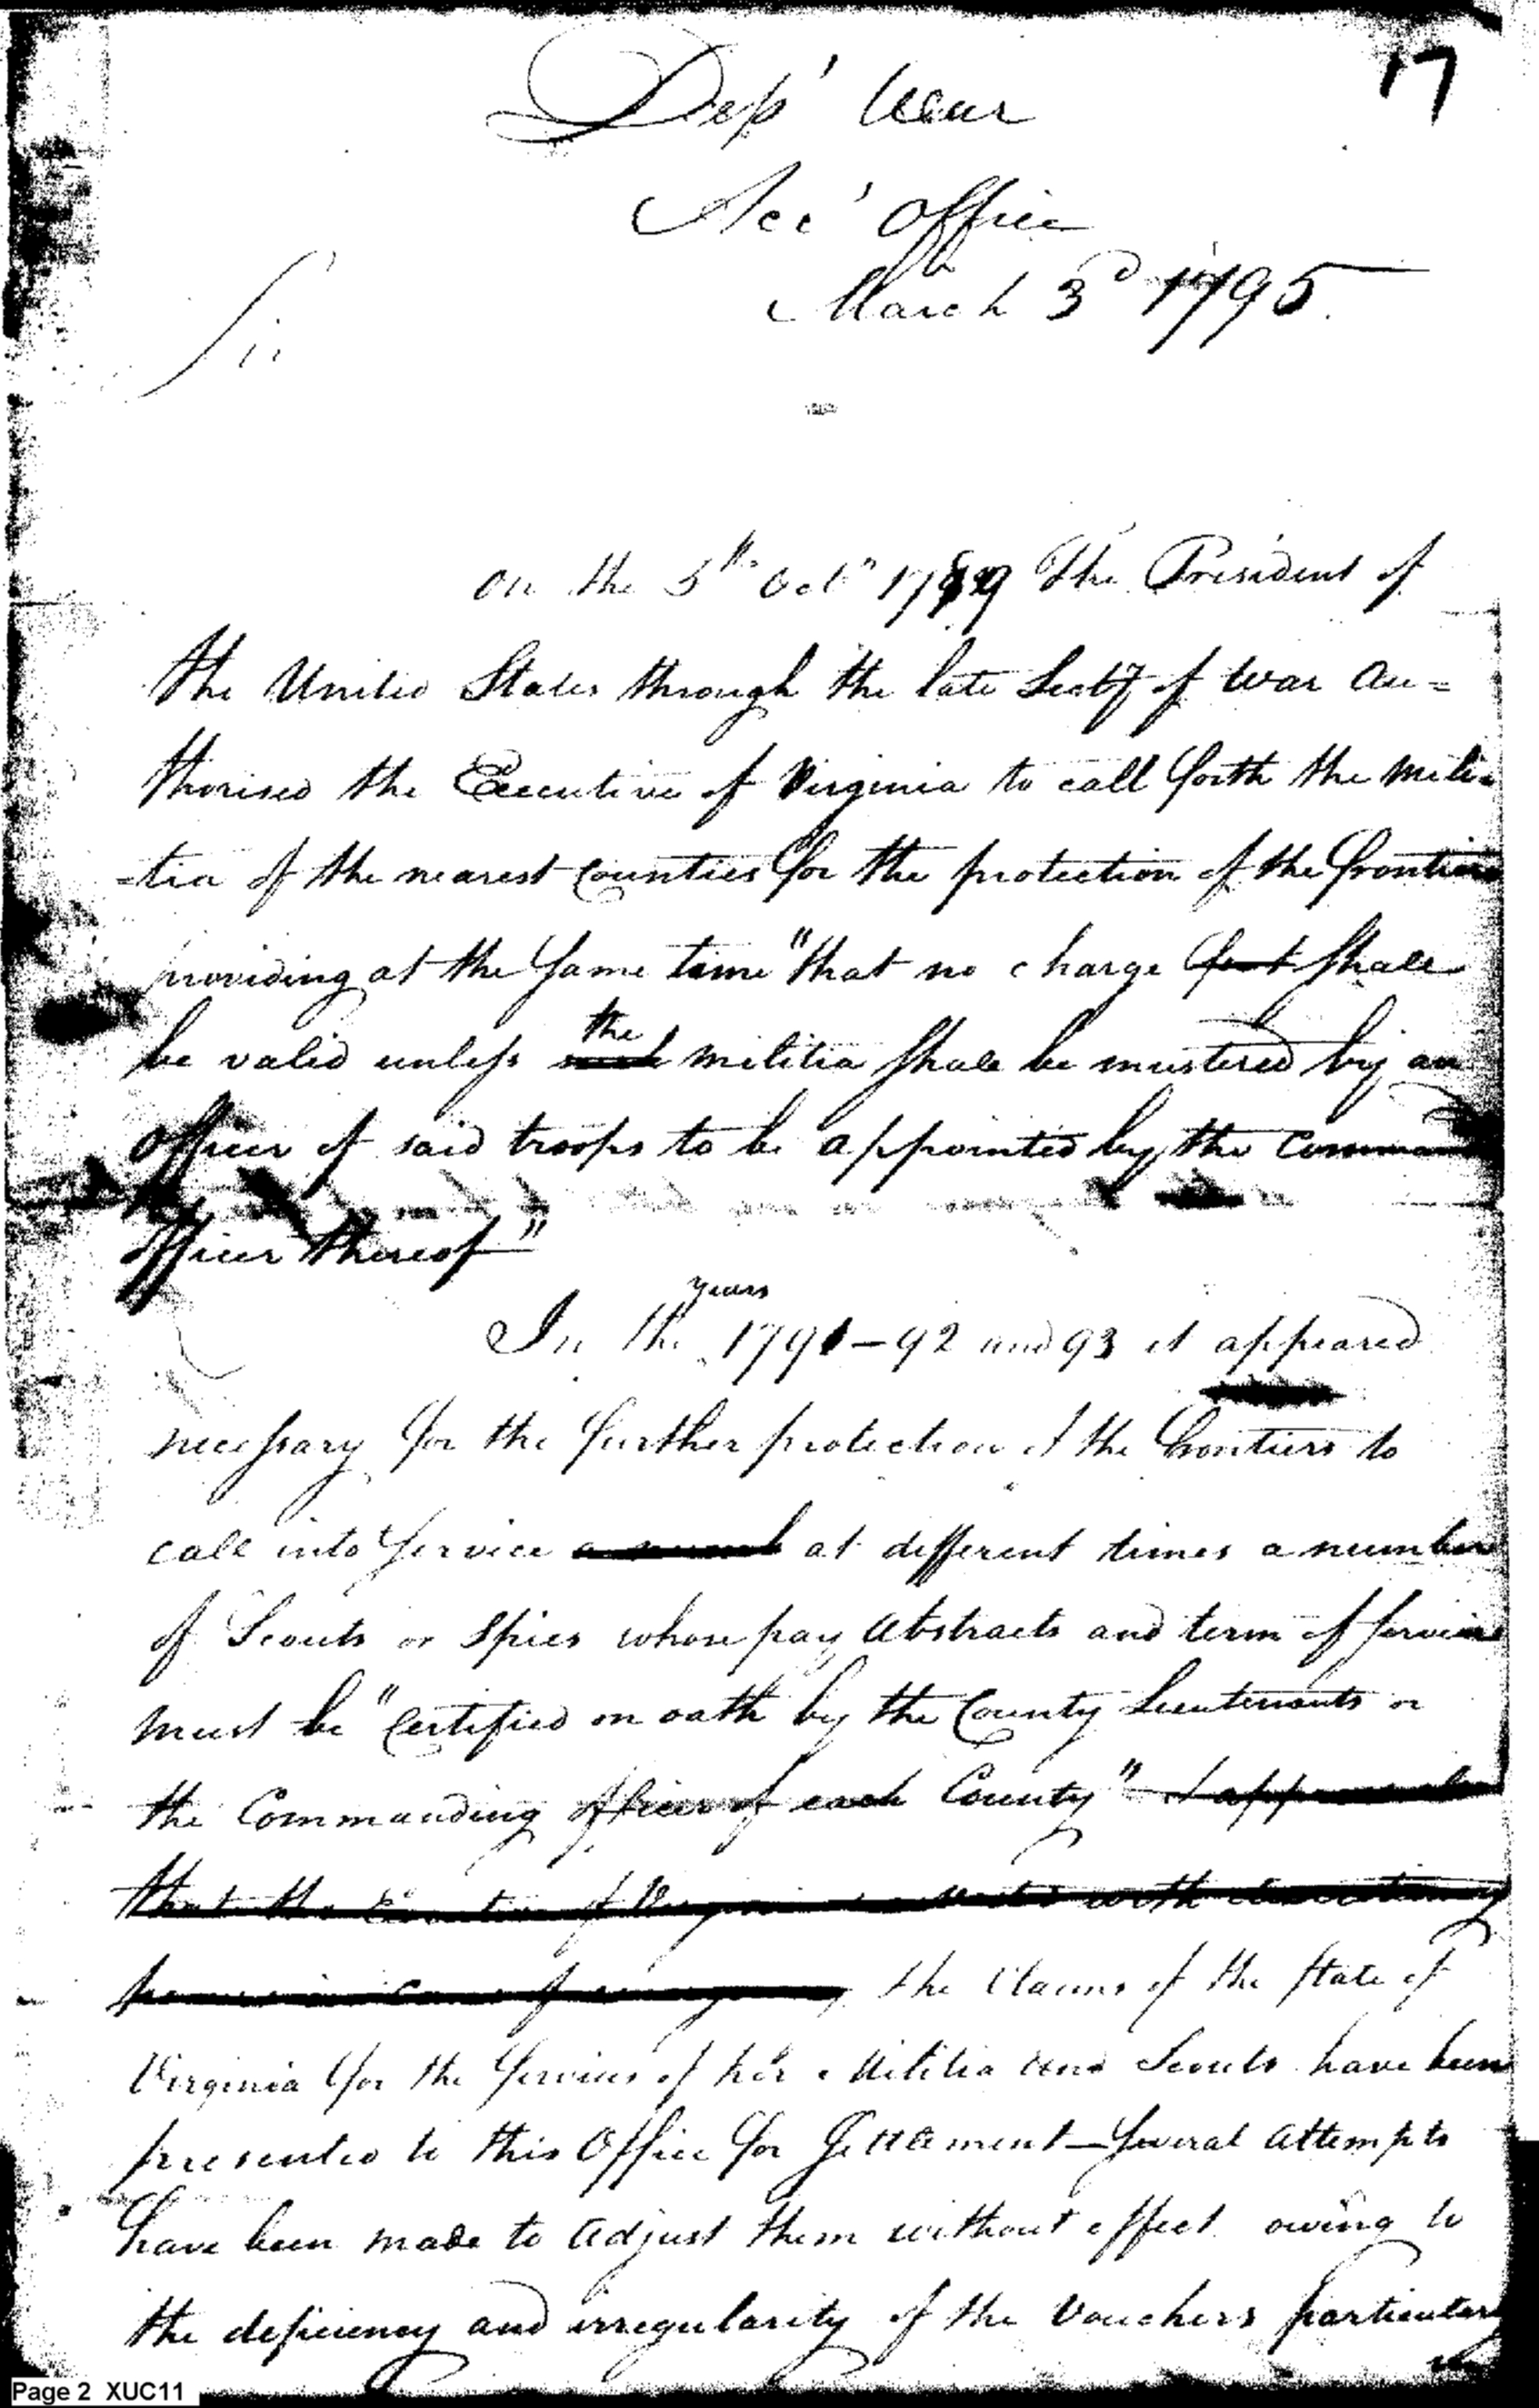 17
Dept War
Acct Office
March 3d 1795.
Sir
On the 5th Octr 1789 The President of
the United States through the late Secty of War au=
thorised the Executive of Virginia to call forth the mili=
=tia of the nearest Counties for the protection of the frontiers
providing at the same time "that no charge shall
be valid unless the militia shall be mustered by an
officer of said troops to be appointed by the Command
officer thereof"
In the years 1791-92 and 93 it appeared
necessary for the further protection of the frontiers to
call into service a numb at different times a number
of Scouts or Spies whose pay abstracts and term of service
must be "Certified on oath by the County Lieutenants or
the Commanding officer of each County" it appears also
that the Executive of Virginia with discretionary
in cases of emergency the Claims of the State of
Virginia for the services of her Militia and Scouts have been
presented to this Office for Settlement—several attempts
have been made to adjust them without effect owing to
the deficiency and irregularity of the Vouchers particularly
Page 2 XUC11